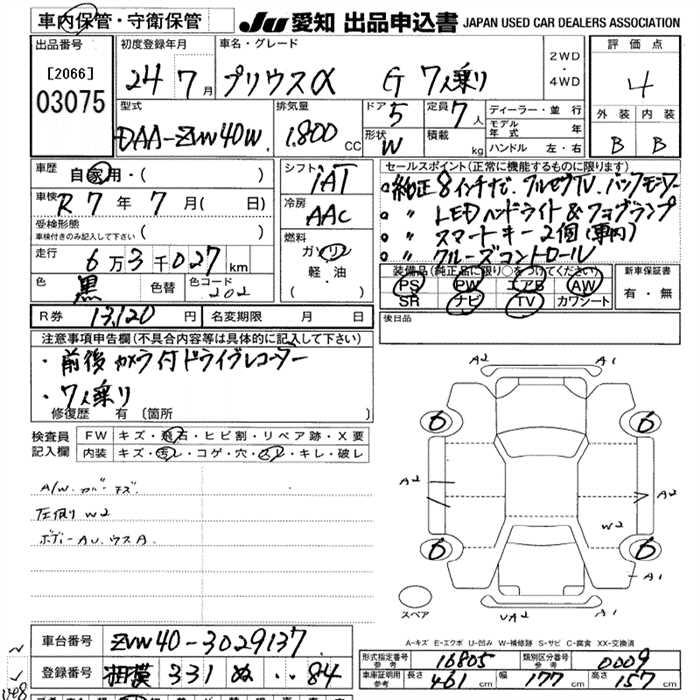 車内保管・守衛保管
JU 愛知 出品申込書 JAPAN USED CAR DEALERS ASSOCIATION
出品番号 [2066] 03075
初度登録年月 24 7月
車名・グレード プリウスα G 7人乗り
2WD ・ 4WD
評価点 4
外装 内装
B B
型式 DAA-ZVW40W
排気量 1,800 CC
ドア 5
形状 W
定員 7人
積載 kg
ディーラー・並行
モデル年式 年
ハンドル 左・右
車歴 自家用・( )
車検 R7年7月( 日)
受検形態
車検付きのみ記入して下さい ( )
走行 6万3千027km
色 黒 色替 色コード 202
シフト IAT
冷房 AAC
燃料 ガソリン
軽油
( )
セールスポイント(正常に機能するものに限ります)
純正8インチナビ.フルセグTV.バックモニター
〃 LEDヘッドライト&フォグランプ
〃 スマートキー2個(車内)
〃 クルーズコントロール
装備品(純正品に限り○をつけてください)
PS PW エアB AW
SR ナビ TV カワシート
新車保証書
有・無
R券 13,120円 名変期限 月 日
後日品
注意事項申告欄(不具合内容等は具体的に記入して下さい)
・前後カメラ付ドライブレコーダー
・7人乗り
修復歴 有 〔箇所 〕
検査員記入欄
FW キズ・飛石・ヒビ割・リペア跡・X要
内装 キズ・汚レ・コゲ・穴・スレ・キレ・破レ
A/W.ガリ キズ
圧側り W2
ボディーAU.ウスA.
A2 A1
6 6
A2 A2
W2
6 6
A1
UA2 A1
スペア
A-キズ E-エクボ U-凹み W-補修跡 S-サビ C-腐食 XX-交換済
車台番号 ZVW40-3029137
登録番号 相模 331 ぬ ‥84
形式指定番号 参考 16805
類別区分番号 参考 0009
車庫証明用 参考 長さ 461cm 幅 177cm 高さ 157cm